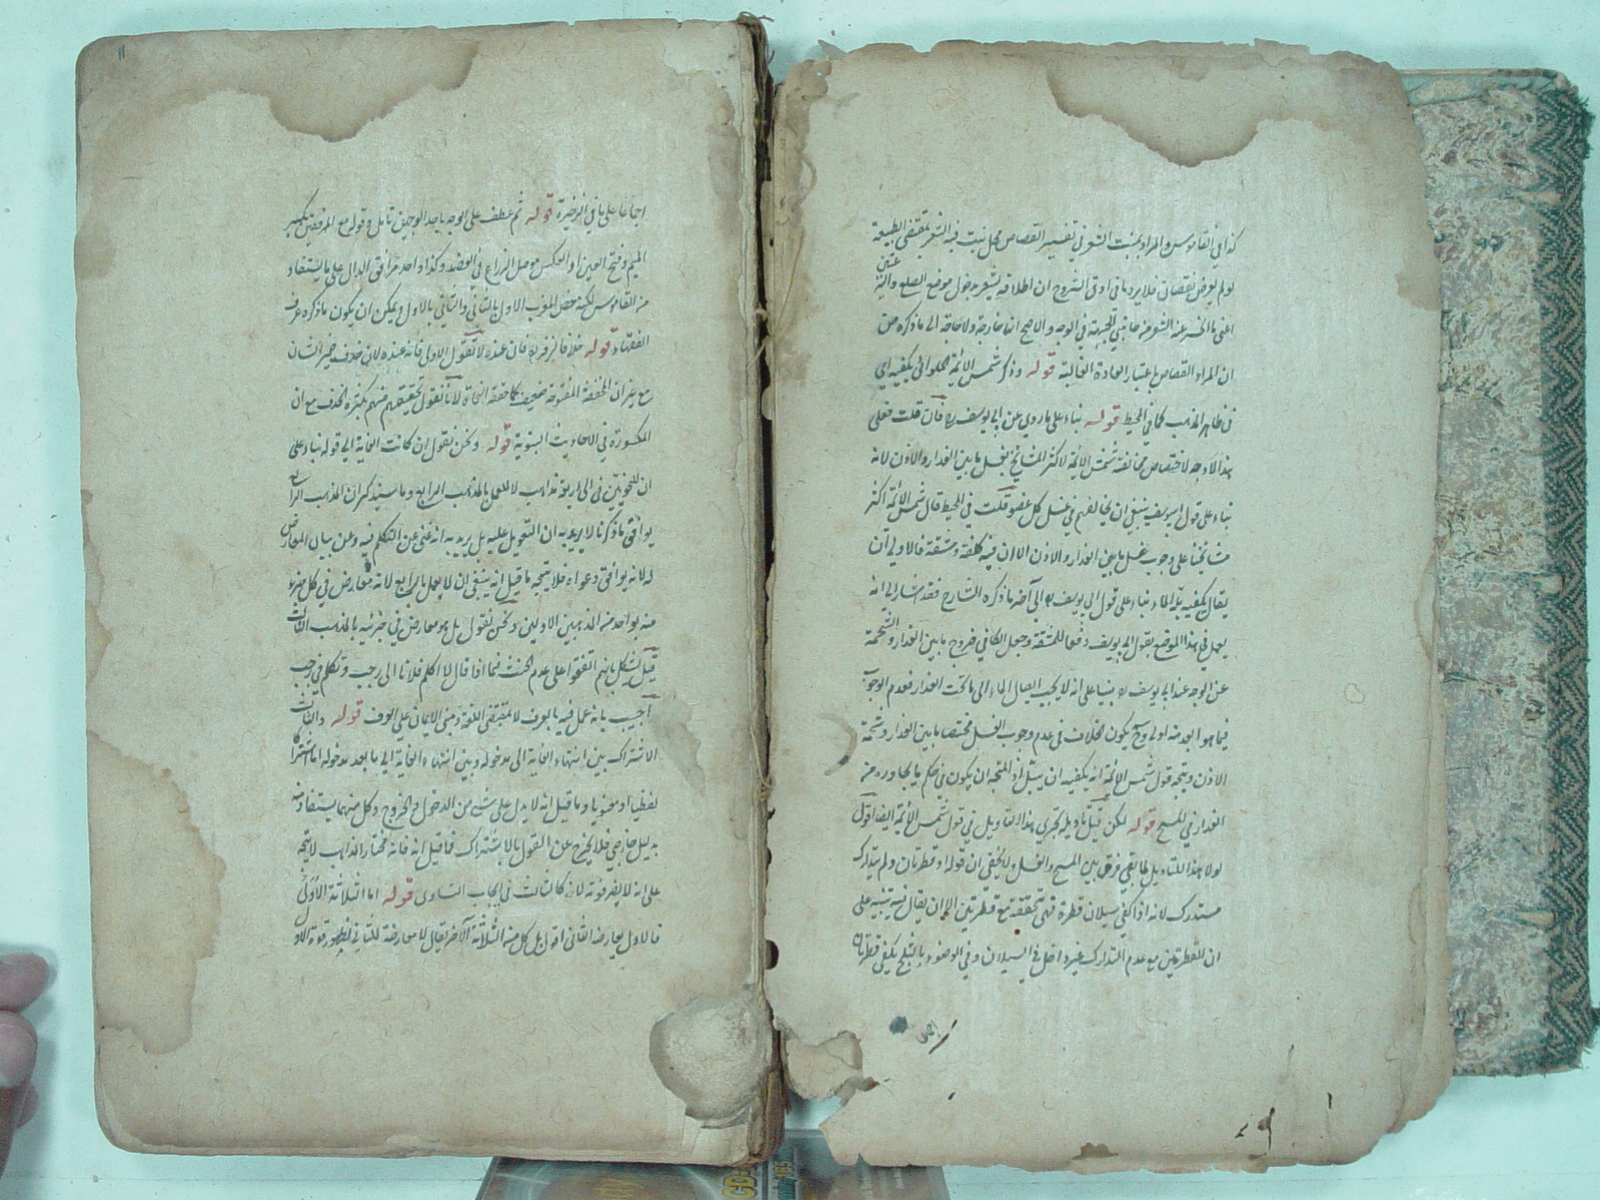 كذا في القاموس والمراد بمنبت الشعر في تفسير القصاص محل نبت فيه الشعر بمقتضى الطبيعة
ولم يعرض نقصان فلا يرد ما في اوفى الشروح ان اطلاقه يشعر بدخول موضع الصلع
عنه الشعر من جانبي الجبهة في الوجه والاصح انها خارجة ولا حاجة الى ما ذكره من
ان المراد القصاص باعتبار العادة الغالبة قوله وذكر شمس الائمة الحلوائي يكفيه اي
في ظاهر المذهب كما في المحيط قوله بناء على ما روي عن ابي يوسف ره فان قلت فعلى
هذا لا وجه لاختصاص مخالفة شمس الائمة لاكثر المشائخ بغسل ما بين العذار والاذن لانه
بناء على قول ابي يوسف ينبغي ان يخالفهم في غسل كل عضو قلت في المحيط قال شمس الائمة اكثر
مشايخنا على وجوب غسل ما بين العذار والاذن الا ان فيه كلفة ومشقة فالاولى ان
يقال يكفيه بلة الماء بناء على قول ابي يوسف ره الى آخر ما ذكره الشارح فقد اشار الى انه
يعمل في هذا الموضع بقول ابي يوسف دفعا للمشقة وجعل الكافي خروج ما بين العذار والشحمة
عن الوجه عند ابي يوسف ره مبنيا على انه لا يجب ايصال الماء الى ما تحت العذار فعدم الوجوب
فيما هو ابعد منه اولى وح يكون الخلاف في عدم وجوب الغسل مختصا ما بين العذار وشحمة
الاذن ويتجه قول شمس الائمة انه يكفيه ان يبتل اذ المتجه ان يكون في حكم ما يجاوره من
العذار في المسح قوله لكن قيل تاويله يجري هذا التاويل في قول شمس الائمة ايضا اقول
لولا هذا التاويل لما بقي فرق بين المسح والغسل ولا يخفى ان قوله او قطرتان ولم يتدارك
مستدرك لانه اذا كفى سيلان قطرة فهي متحققة مع قطرتين الا ان يقال فيه تنبيه على
ان القطرتين مع عدم التدارك غير داخل في السيلان وفي الوضوء بالثلج يكفي قطرتان
اجماعا على ما في الذخيرة قوله ثم عطف على الوجه باحد الوجهين تامل وقوله مع المرفقين بكسر
الميم وفتح العين او العكس موصل الذراع في العضد وكذا واحد مرافق الدال على ما يستفاد
من القاموس لكنه خص المغرب الاول بالثاني والثاني بالاول ويمكن ان يكون ما ذكره عرف
الفقهاء قوله خلافا لزفر ره فان عنده لا نقول الاولى فانه عنده لان حذف ضمير الشان
مع ان المخففة المفتوحة ضعيف كما حققه النحاة لانا نقول تحقيقهم منهم بكثرة الحذف مع ان
المكسورة في الاحاديث النبوية قوله ونحن نقول ان كانت الغاية الى قوله بناء على
ان للنحويين في الى اربعة مذاهب لا للعمل بالمذهب الرابع وما سيذكر ان المذهب الرابع
يوافق ما ذكرنا لا يريد به ان التعويل عليه بل يريد به انه غني عن التكلم فيه وعن بيان المعارض
له لانه يوافق دعواه فلا يتجه ما قيل انه ينبغي ان لا يعمل بالرابع لانه معارض في كل جزء
منه بواحد من المذهبين الاولين ونحن نقول بل هو معارض في جزئيه بالمذهب الثالث
قيل يشكل بانهم اتفقوا على عدم الحنث فيما اذا قال لا اكلم فلانا الى رجب وتكلم في رجب
اجيب بانه عمل فيه بالعرف لا بمقتضى اللغة ومبنى الايمان على العرف قوله والثالث
الاشتراك بين انتهاء الغاية الى مدخوله وبين انتهاء الغاية الى ما بعد مدخوله اما اشتراكا
لفظيا او معنويا وما قيل انه لا يدل على شئ من الدخول والخروج وكل منهما يستفاد منه
بدليل خارجي فلا يخرج عن القول بالاشتراك فما قيل انه فاته مختار المذاهب لا يتجه
على انه لا يضر فوته لانه كالثالث في ايجاب التساوي قوله اما الثلاثة الاولى
فالاول يعارضه الثاني اقول بل كل من الثلاثة الآخر يقال لا معارضة للثاني لظهور قوة الاول